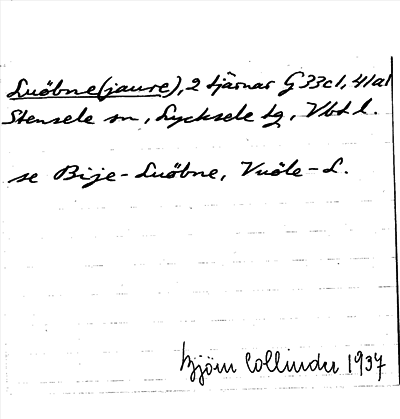 Luöbne(jaure), 2 tjärnar G 33c1, 41a1
Stensele sn, Lycksele tg, Vbtl.
se Bije-Luöbne, Vuöle-L.
Björn Collinder 1937